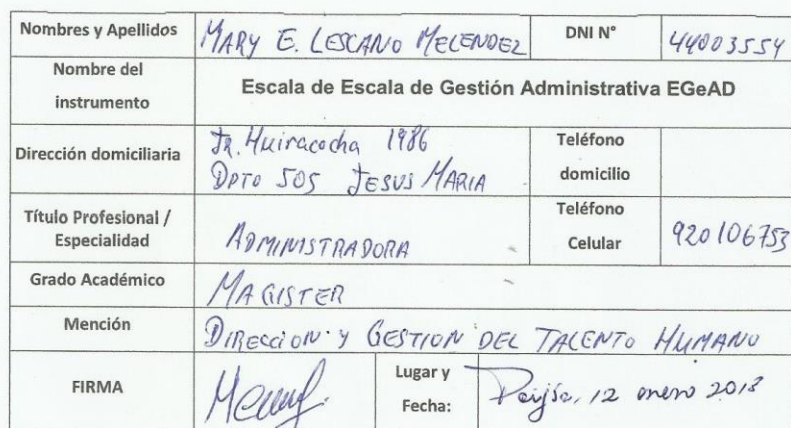 Nombres y Apellidos MARY E. LESCANO MELENDEZ DNI N° 44003554
Nombre del
instrumento
Escala de Escala de Gestión Administrativa EGeAD
Dirección domiciliaria
Jr. Huiracocha 1986
DPTO 505 JESUS MARIA
Teléfono
domicilio
Título Profesional /
Especialidad
ADMINISTRADORA
Teléfono
Celular
920106753
Grado Académico MAGISTER
Mención DIRECCION Y GESTION DEL TALENTO HUMANO
FIRMA
Lugar y
Fecha:
12 enero 2018